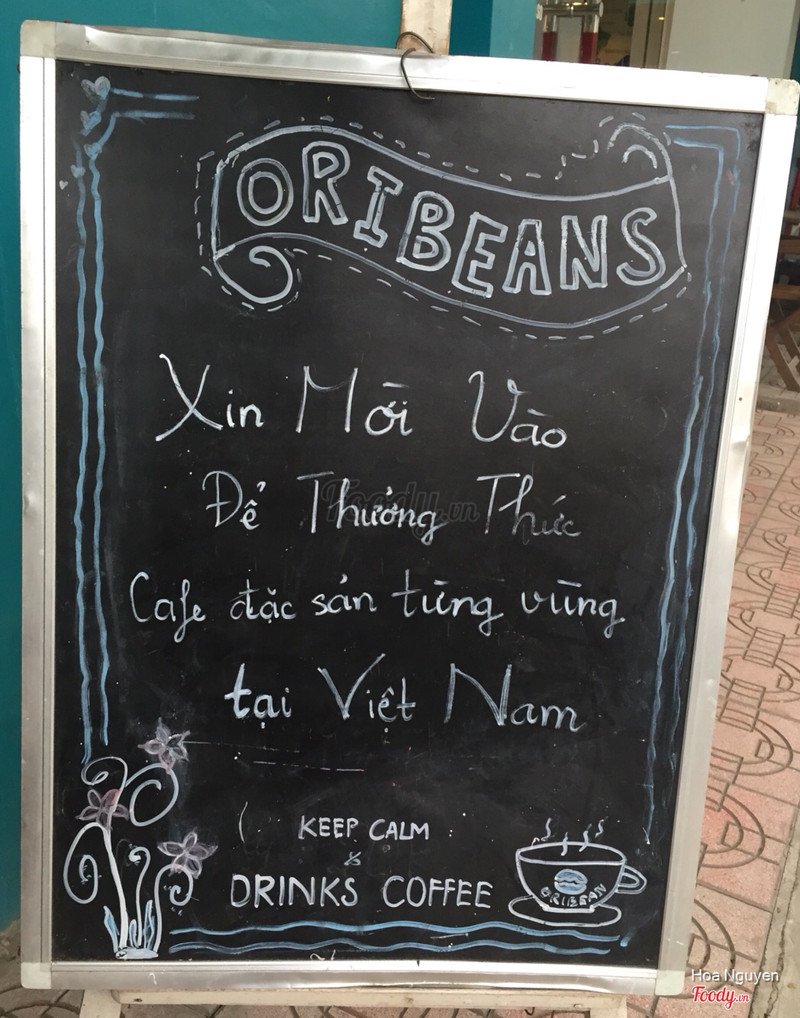 ORIBEANS
Xin Mời Vào
Để Thưởng Thức
Cafe đặc sản từng vùng
tại Việt Nam
KEEP CALM
&
DRINKS COFFEE
ORIBEAN
Foody.vn
Hoa Nguyen
Foody.vn